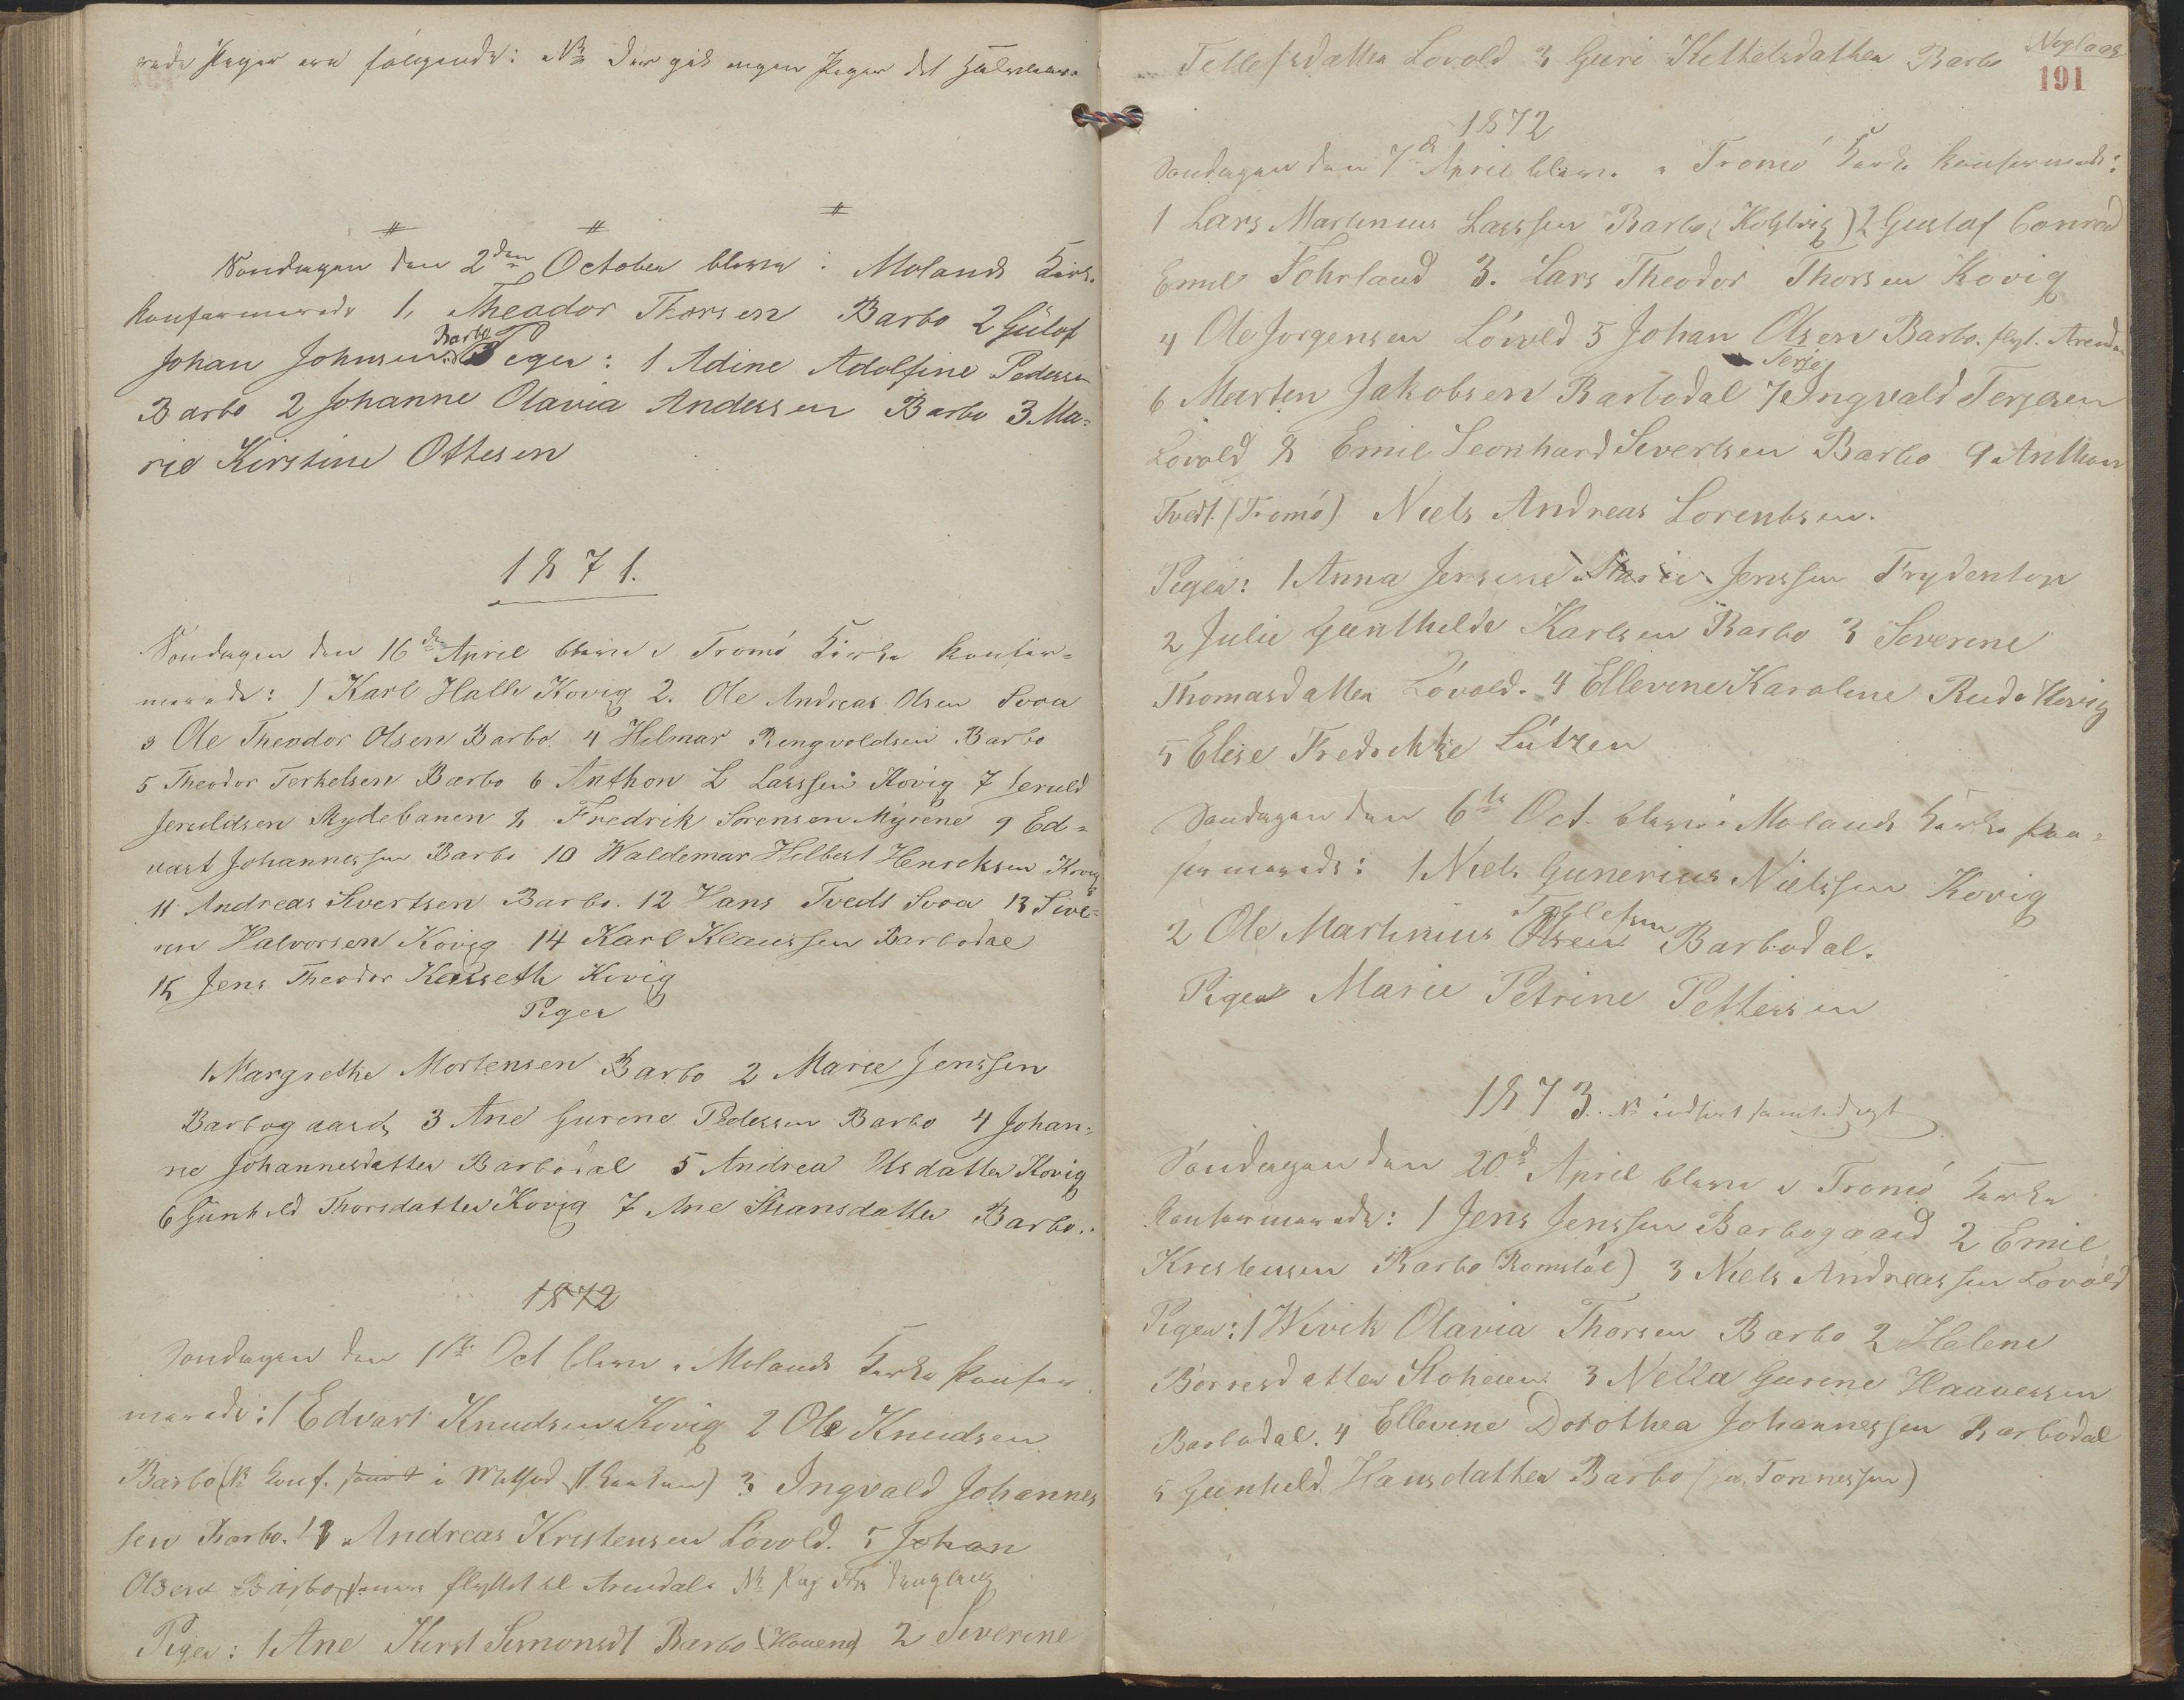 rede Piger ere følgende: NB Der gik ingen Piger det Halvaar.
Søndagen den 2den October bleve i Molands Kirk.
konfirmerede 1, Theodor Thorsen Barbo 2 Gülof
Johan Johnsen Barbo Piger: 1 Adine Adolfine Pedersen
Barbo 2 Johanne Olavia Anderssen Barbo 3 Ma-
rie Kirstine Ottesen
1871.
Søndagen den 16de April bleve i Tromö Kirke konfir-
merede: 1 Karl Halle Kovig 2. Ole Andreas Olsen Svoa
3 Ole Theodor Olsen Barbo. 4 Hilmar Ringvoldsen Barbo
5 Theodor Terkelsen Barbo 6 Anthon L Larssen Kovig 7 Jeruld
Jeruldsen Skydebanen 8 Fredrik Sørensen Myrene 9 Ed-
vart Johannessen Barbo 10 Waldemar Hilbert Henriksen Kovig
11 Andreas Sivertsen Barbo. 12 Hans Tvedt Svoa 13 Sive-
ren Halvorsen Kovig 14 Karl Klaussen Barbodal
15 Jens Theodor Kalseth Kovig
Piger
1 Margrethe Mortensen Barbo 2 Marie Jenssen
Barbogaard, 3 Ane Gurine Pedersen Barbo 4 Johan-
ne Johannesdatter Barbodal 5 Andrea Olsdatter Kovig
6 Gunhild Thorsdatter Kovig 7 Ane Hansdatter Barbo.
1872
Søndagen den 1ste Oct bleve i Molands Kirke konfir
merede: 1 Edvart Knudsen Kovig 2 Ole Knudsen
Barbo (NB konf. i) 3 Ingvald Johannes
sen Barbo. 4 Andreas Kristensen Lövold. 5 Johan
Olsen Barbo flyttet til Arendal. NB
Piger: 1 Ane Kirst Simonsdt Barbo (Houene) 2 Severine
Tellefsdatter Lovold 3 Guri Kittelsdatter Barbo Neglaas
191
1872
Søndagen den 7de April bleve i Tromö Kirke konfirmerede:
1 Lars Martinius Larssen Barbo (Kolstvig) 2 Gustaf Conrad
Emil Fohrland 3. Lars Theodor Thorsen Kovig
4 Ole Jorgensen Löwold 5 Johan Olsen Barbo. flyt. Arendal
6 Morten Jakobsen Barbodal 7 Terje Ingvald Terjesen
Lövold 8 Emil Leonhard Sivertsen Barbo 9 Anthon
Tvedt. (Tromö) Niels Andreas Lorentsen.
Piger: 1 Anna Jensine Marie Jenssen Frydentop
2 Julie Gunthilde Karlsen Barbo 3 Severine
Thomasdatter Lövold. 4 Ellevine Karoline Rud Kovig
5 Elise Fredrikke Lützen
Søndagen den 6te Oct. bleve i Molands Kirke kon-
firmerede: 1 Niels Gunerius Nielssen Kovig
2 Ole Martinius Olsen Tellefsen Barbodal.
Piger Marie Petrine Pettersen
1873. NB indført
Søndagen den 20de April bleve i Tromö Kirke
konfirmerede: 1 Jens Jenssen Barbogaard 2 Emil
Kristensen Barbo Romstöl) 3 Niels Andreassen Lovold
Piger: 1 Wivik Olavia Thorsen Barbo 2 Helene
Börresdatter Stoheien 3 Nella Gurine Haavessen
Barbodal. 4 Ellevine Dorothea Johannessen Barbodal
5 Gunhild Hansdatter Barbo (Tonnessen)